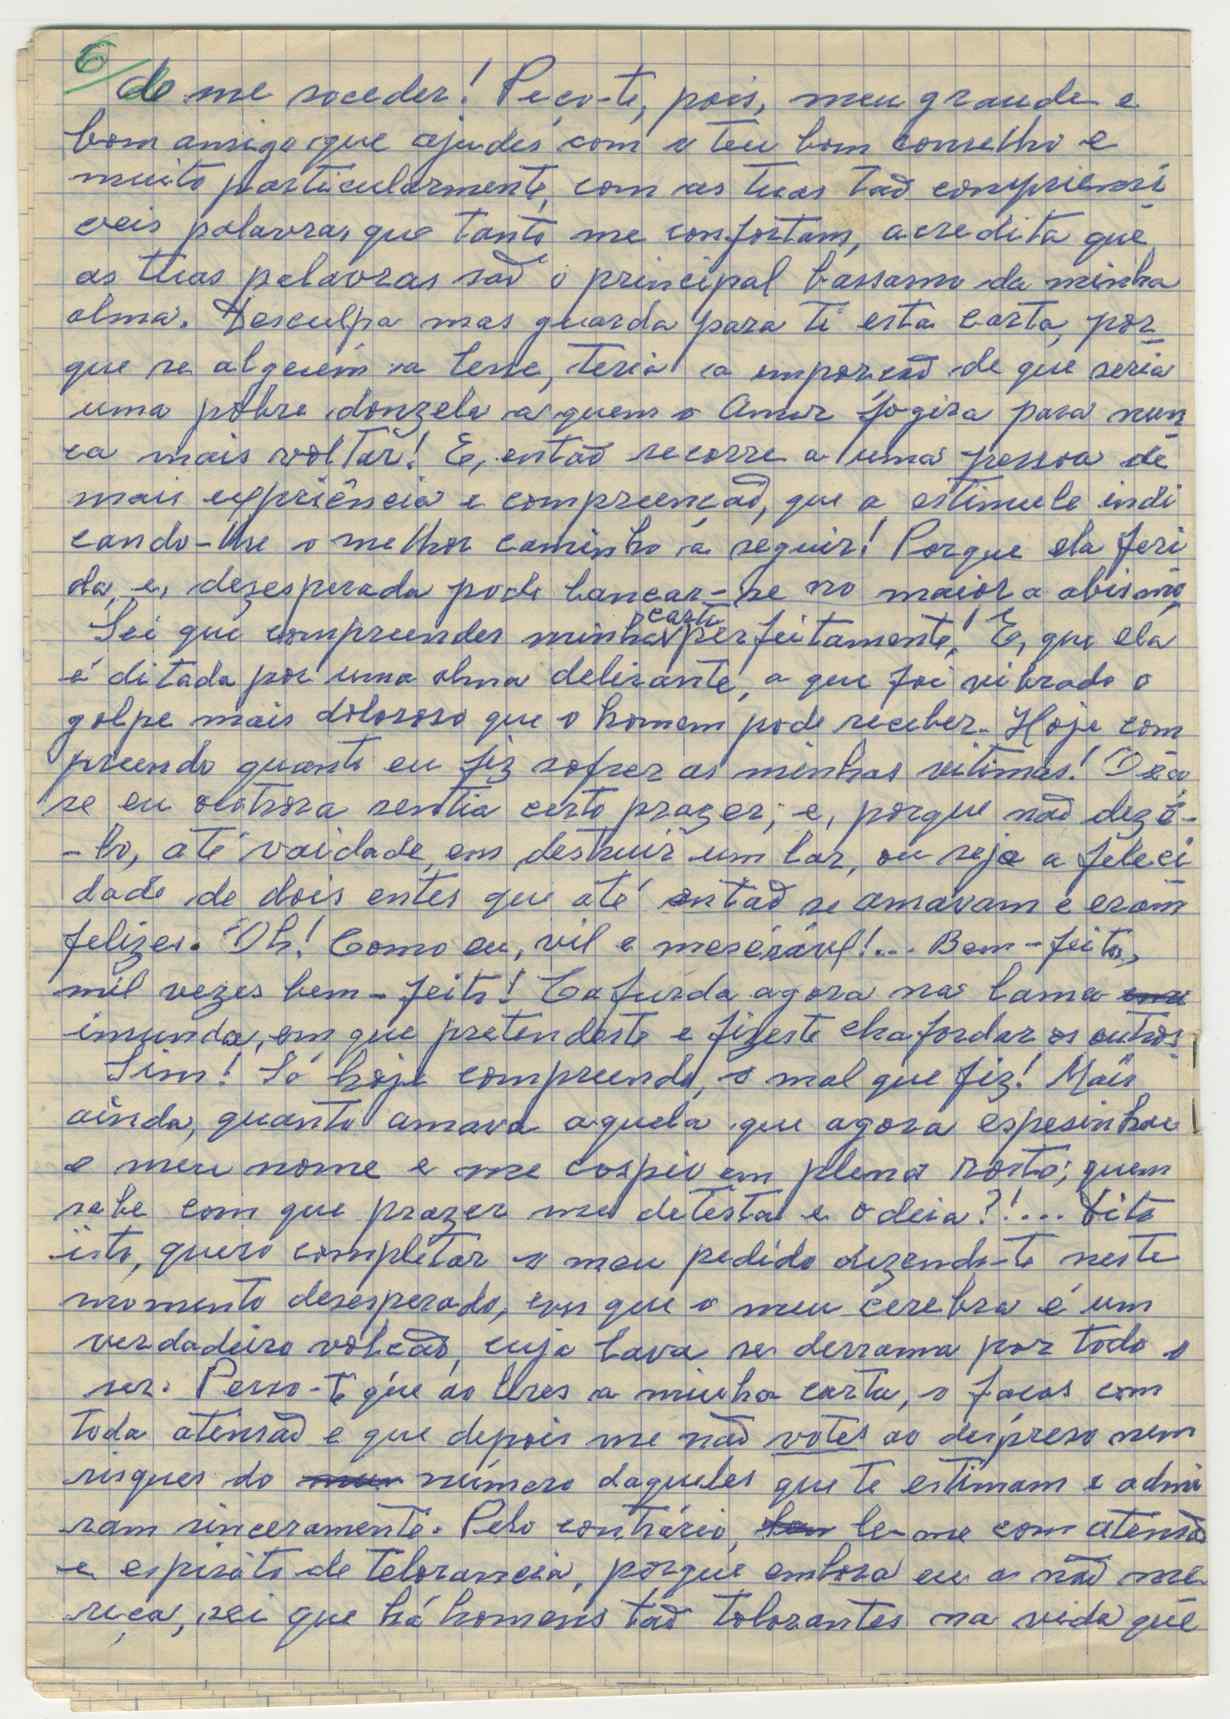 6/
de me soceder! Peço-te, pois, meu grande e
bom amigo que ajudes com o teu bom conselho e
muito particularmente, com as tuas tão compriensi
veis palavras que tanto me confortam, acredita que
as tuas palavras são o principal bassamo da minha
alma. Desculpa mas guarda para ti esta carta, por
que se alguém a lesse, teria a emporsão de que seria
uma pobre donzela a quem o Amor fogira para nun
ca mais voltar! E, então recorre a uma pessoa de
mais expriência e compreenção, que a estimule indi
cando-lhe o melhor caminho a seguir! Porque ela feri
da, e, desesperada pode lançar-se no maior a abismo
Sei que compreendes minha carta perfeitamente! E, que ela
é ditada por uma alma delirante, a que foi vibrado o
golpe mais doloroso que o homem pode receber. Hoje com
preendo quanto eu fiz sofrer as minhas vitimas!
se eu outrora sentia certo prazer; e, porque não dezê-
-lo, até vaidade, em destruir um lar, ou seja a feleci
dade de dois entes que até então se amavam e eram
felizes. Oh! Como eu, vil e meserável!... Bem-feito,
mil vezes bem-feito! Cafurda agora na lama
imunda, em que pretendeste e fizeste chafordar os outros.
Sim! Só hoje compreendo, o mal que fiz! Mais
ainda, quanto amava aquela que agora espesinhou
o meu nome e me cospiu em pleno rosto; quem
sabe com que prazer me detesta e odeia?!... Dito
isto, quero completar o meu pedido dezendo-te neste
momento desesperado, em que o meu cérebro é um
verdadeiro volcão, cuja lava se derrama por todo o
ser. Pesso-te que ao leres a minha carta, o faças com
toda atensão e que depois me não votes ao despreso nem
risques do número daqueles que te estimam e admi
ram sinceramente. Pelo contrário, le-me com atensão
e espirito de telorancia, porque embora eu as não me
reça, sei que há homens tão tolorantes na vida que